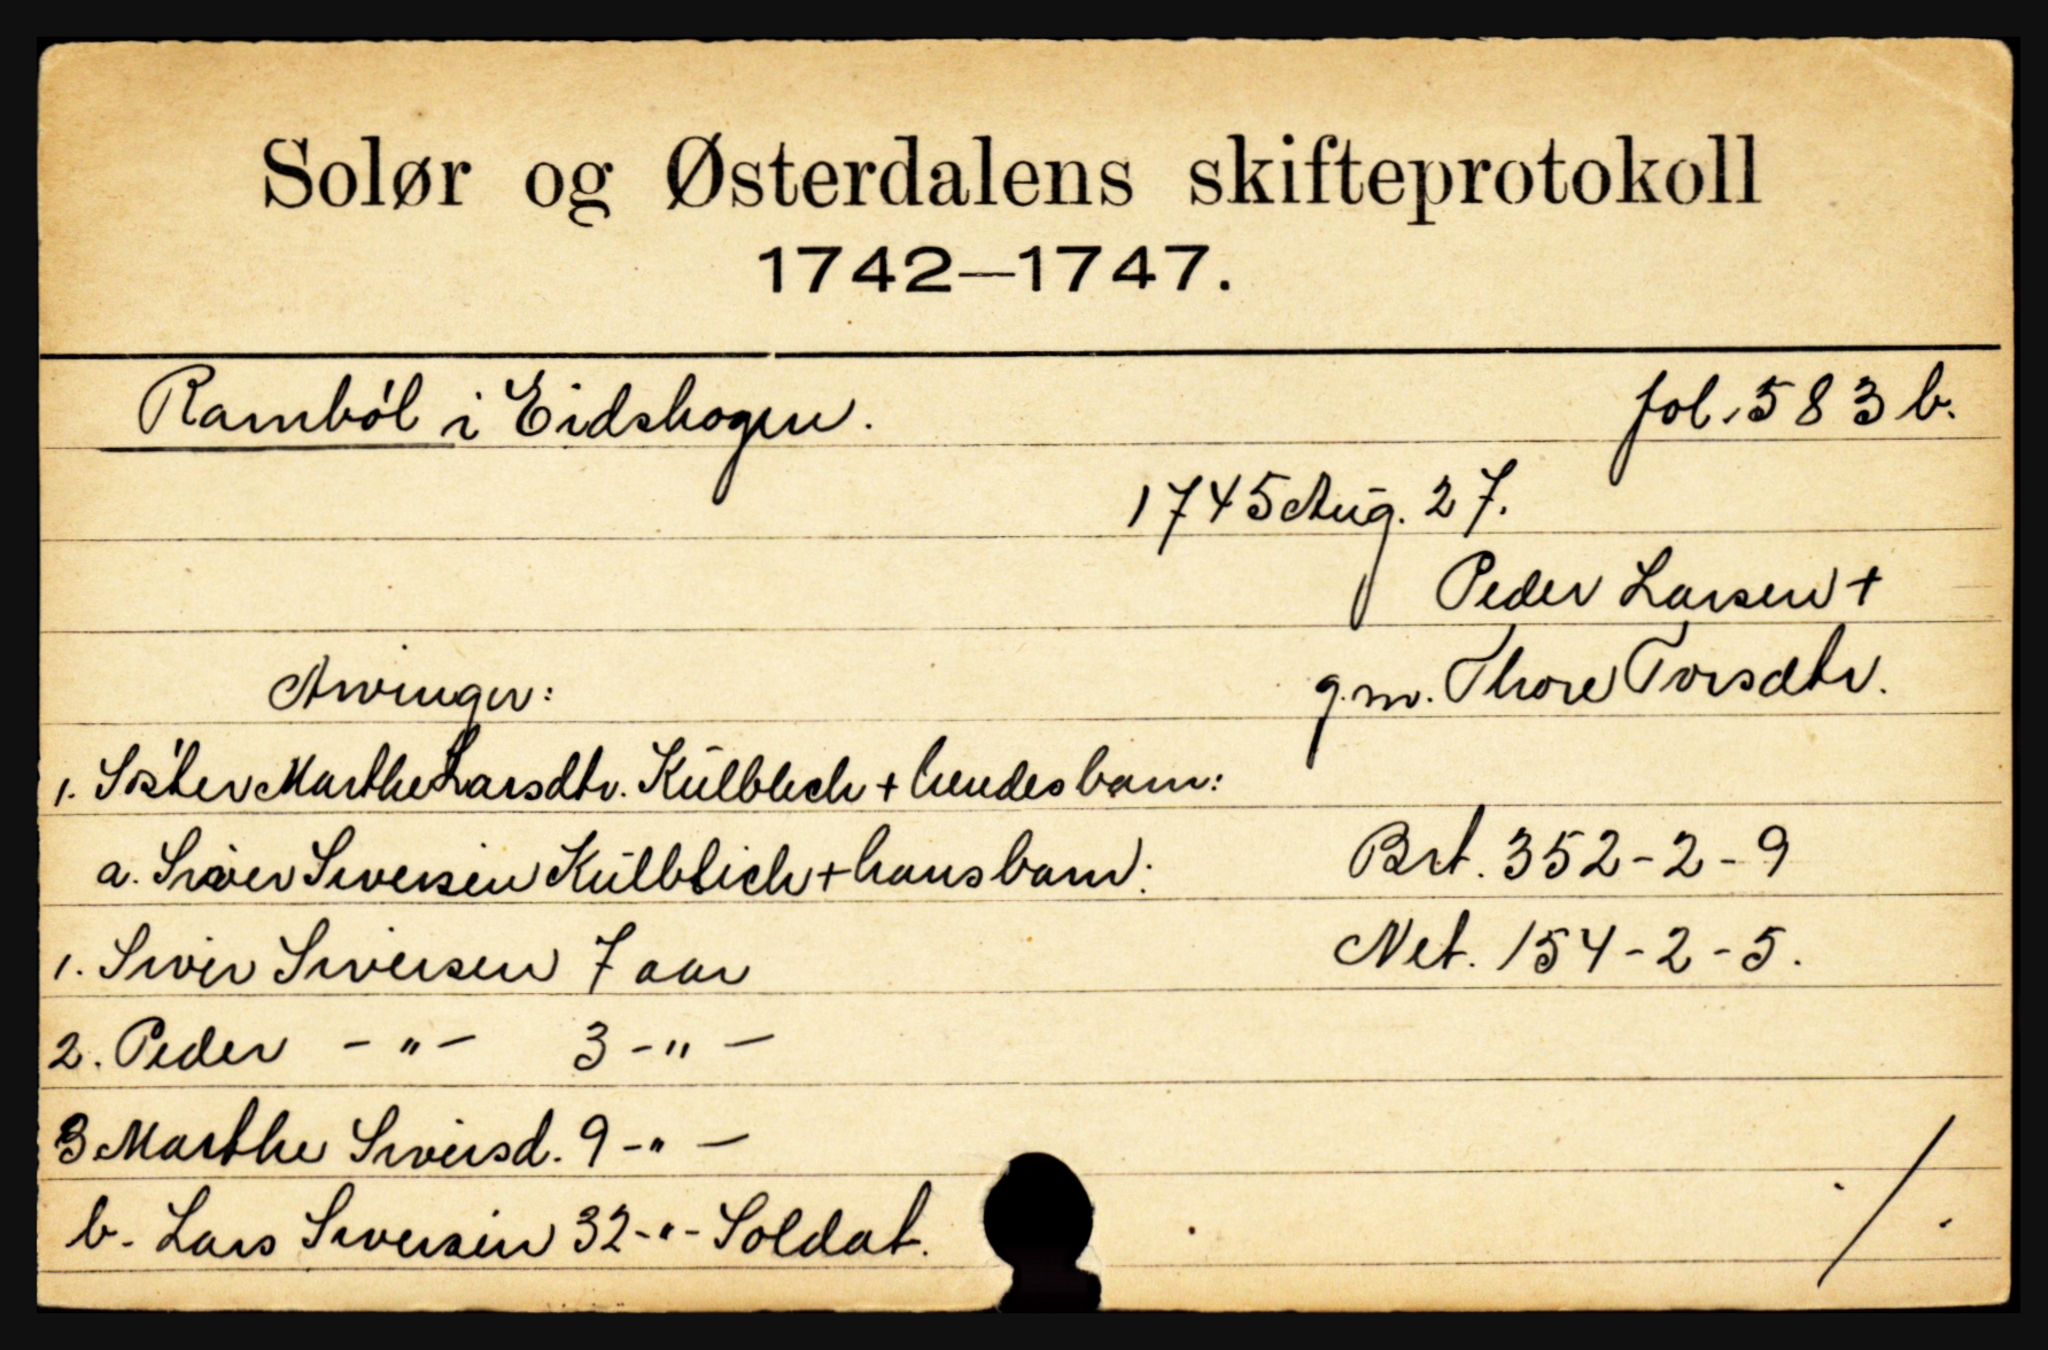 Solør og Østerdalens skifteprotokoll
1742—1747.
Ramböl i Eidskogen. fol. 583 b.
1745 Aug. 27.
Peder Larsen +
Arvinger: g.m. Thore Torsdtr.
1. Söster Marthe Larsdtr. Külblich + hendes barn:
a. Siver Siversen Külblich + hans barn: Brt. 352-2-9
1. Siver Siversen 7 aar Net. 154-2-5.
2. Peder -"- 3 -"-
3 Marthe Siversd. 9 -"-
b. Lars Siversen 32 -"- Soldat.
./.